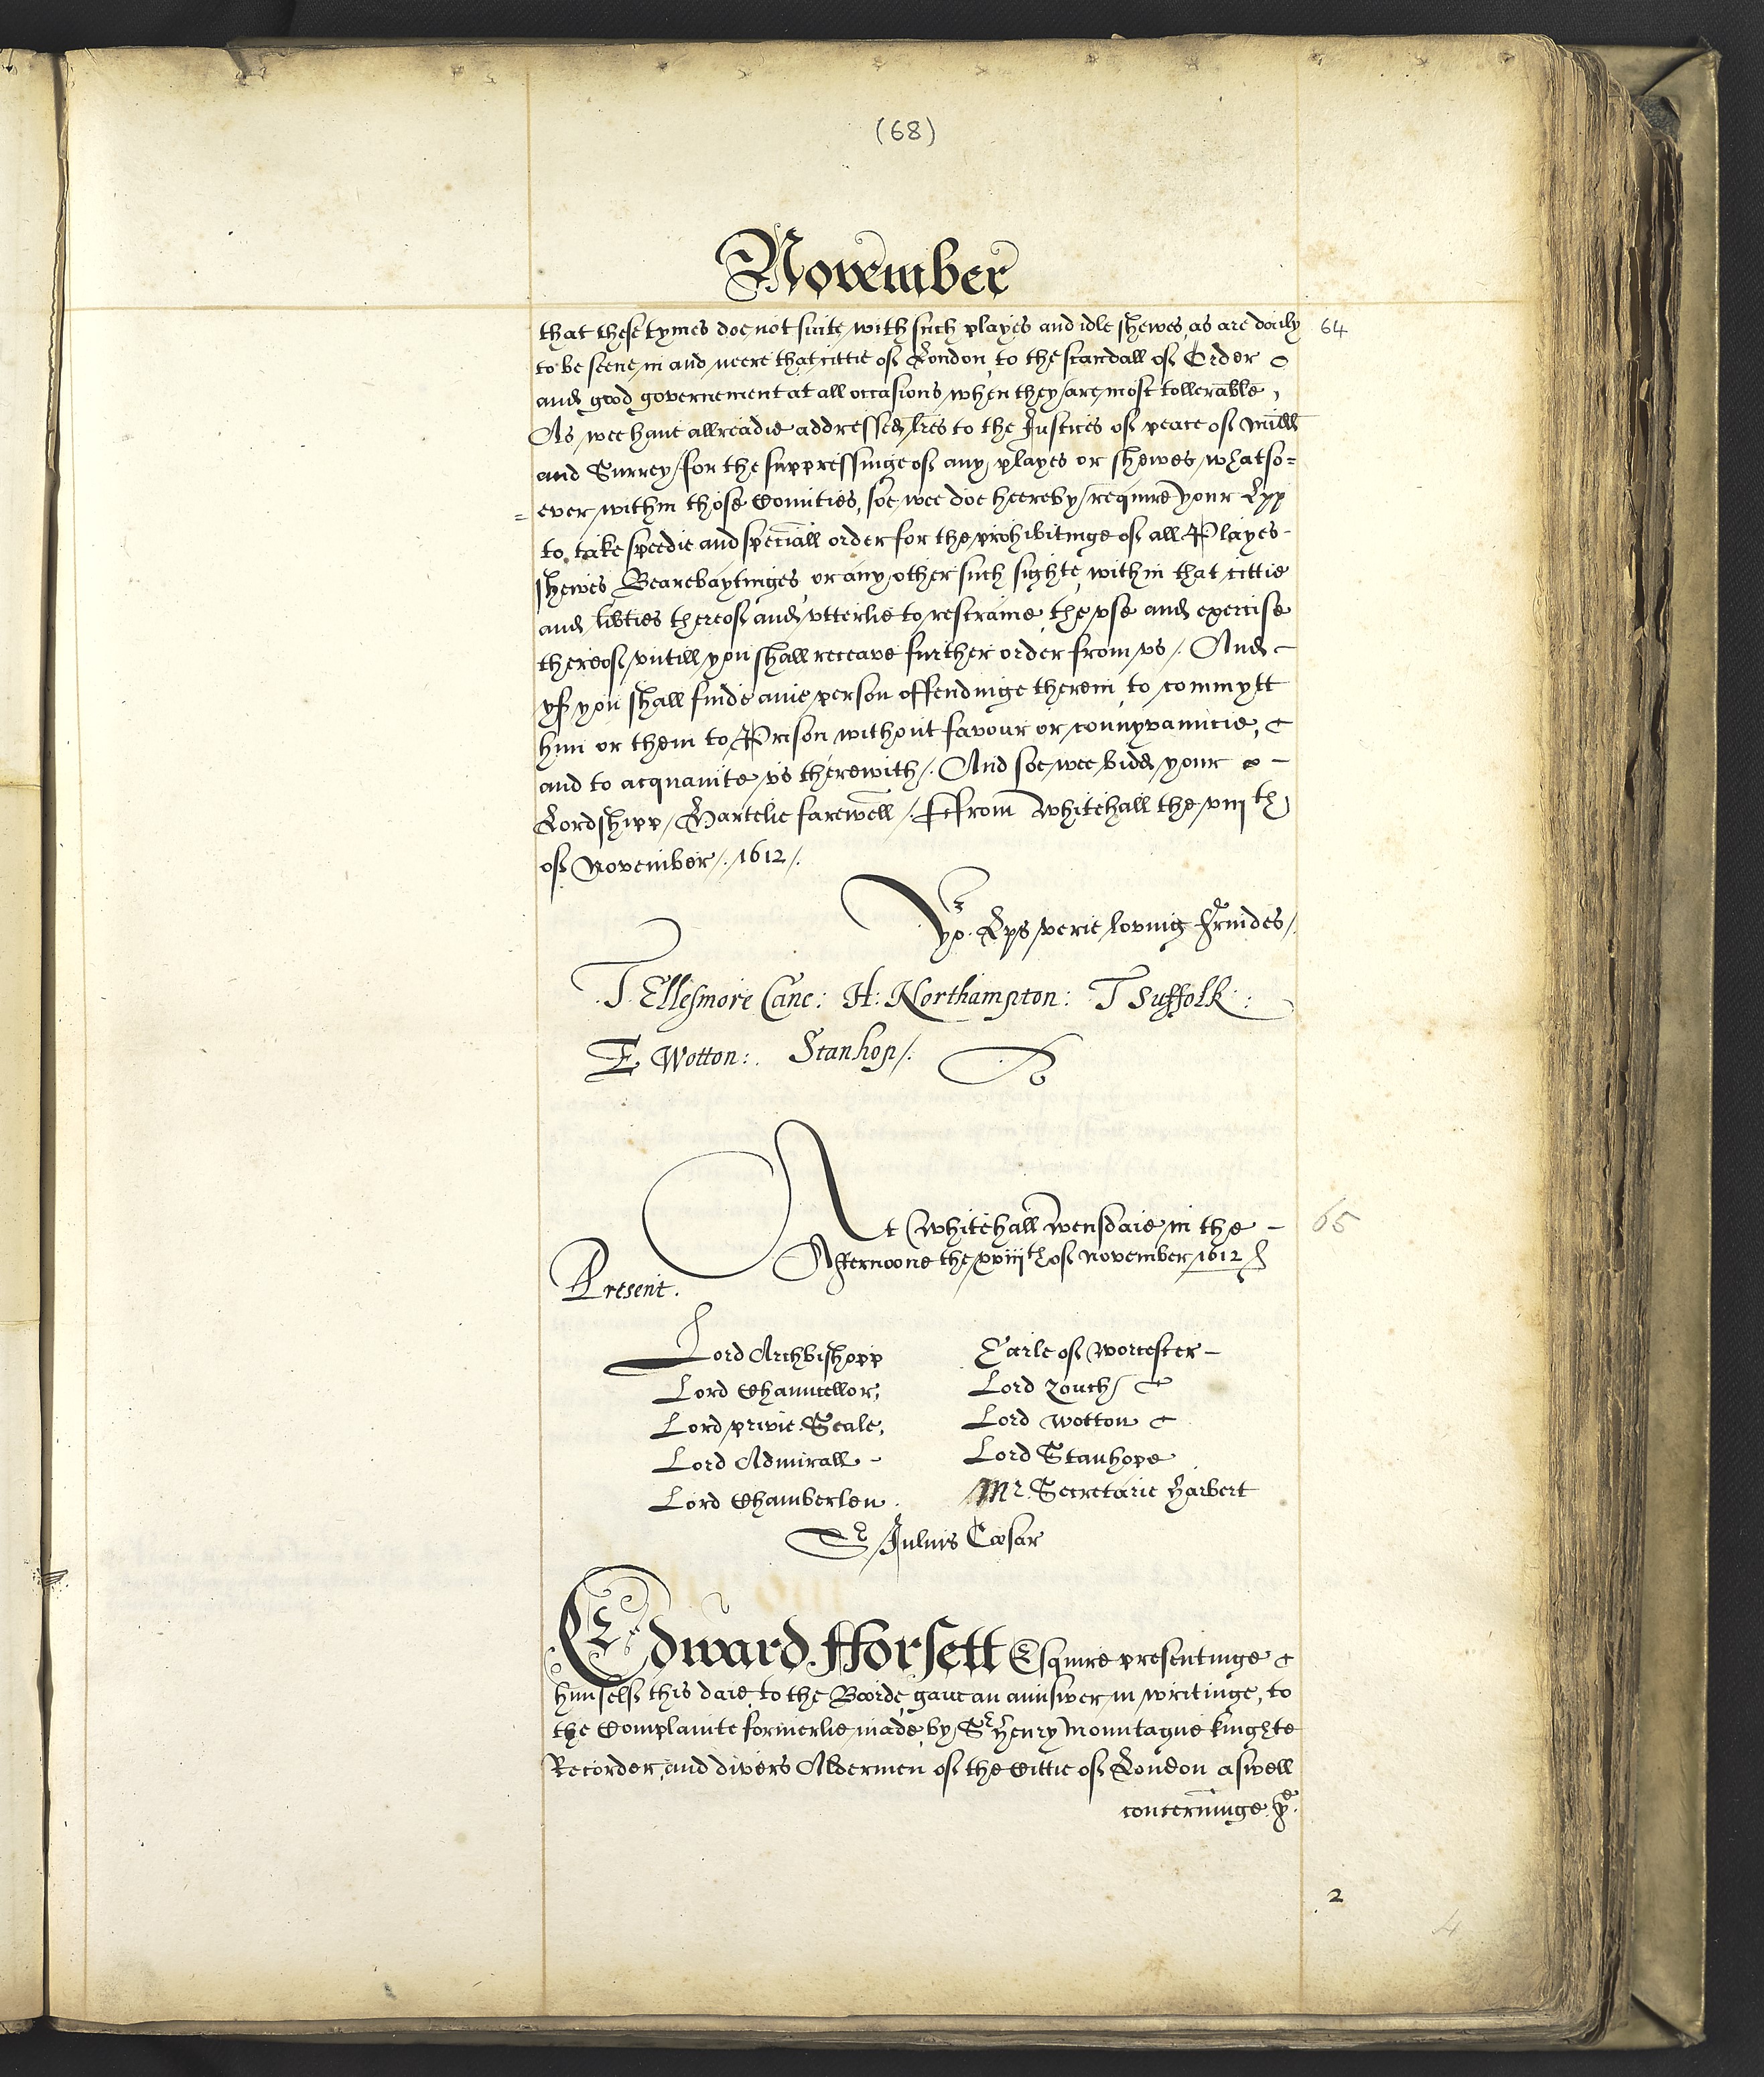 (68)
November
that these tymes doe not suite with such playes and idle shewes, as are daily 64
to be seene, in and neere that cittie of London, to the scandall of Order
and good governement at all occasions when they are most tollerable,
As wee haue allreadie addressed lres to the Justices of peace of Midd
and Surrey for the suppressinge of any playes or shewes whatso=
=ever within those Counties, soe wee doe heereby require your Lpp
to take speedie and speciall order for the prohibitinge of all Playes
shewes Bearebaytinges or any other such sights, within that cittie
and libties thereof and vtterlie to restraine the vse and exercise
thereof vntill you shall receave further order from vs /. And
yf you shall finde anie person offendinge therein to commytt
him or them to Prison without favour or connyvauncie,
and to acquainte vs therewith /. And soe wee bidd your
Lordshipp Hartelie farewell /. ffrom Whitehall the viijth
of November /. 1612 /.
Yor. Lps verie loving Freindes /.
T Ellesmore Canc: H: Northampton: T Suffolk:
E Wotton: Stanhop /.
At Whitehall Wensdaie in the 65
Afternoone the xviijth of November 1612
Present.
Lord Archbishopp Earle of Worcester
Lord Chauncellor, Lord Zouch
Lord privie Seale, Lord Wotton
Lord Admirall Lord Stanhope
Lord Chamberlen. Mr. Secretarie Harbert
Sr Julius Cæsar
Edward fforsett Esquire presentinge
himself this daie to the Boorde gaue an aunswer in writinge, to
the Complainte formerlie made by Sr Henry Mountague knighte
Recorder, and divers Aldermen of the Cittie of London aswell
concerninge ye.
2
4